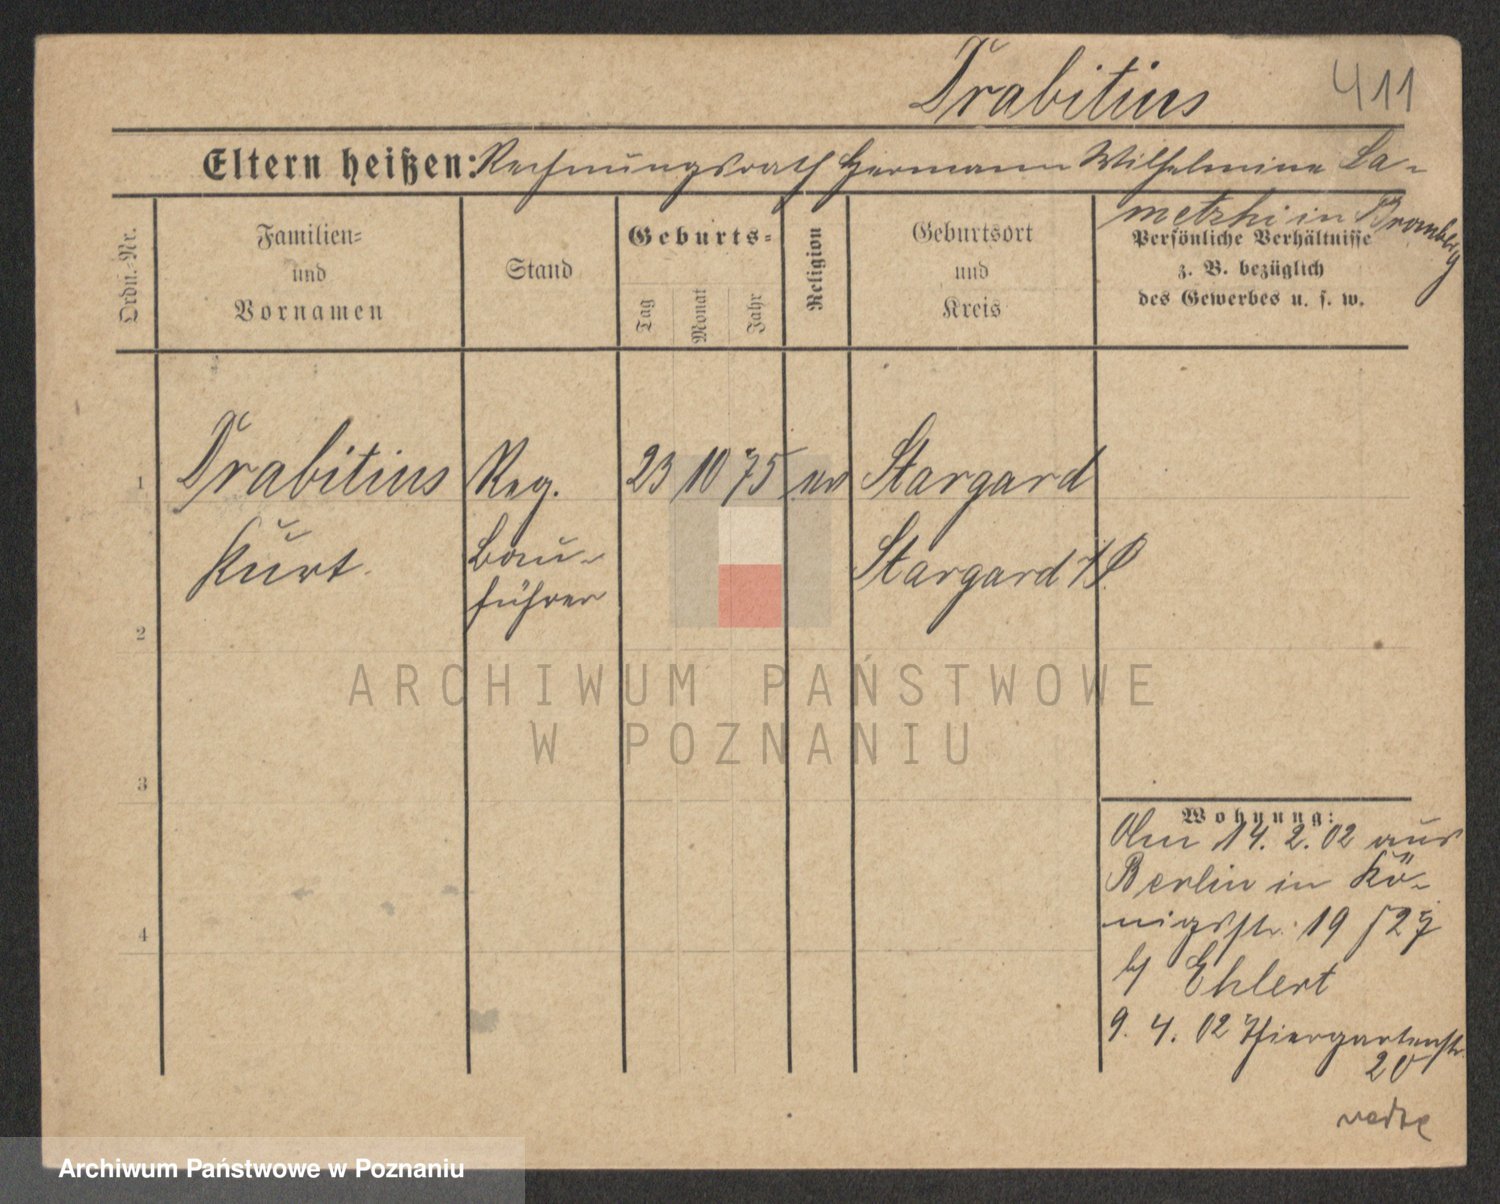 Drabitius 411
Eltern heißen: Rechnungsrath Hermann Wilhelmine La-
metzki in Bromberg
Ordn.-Nr.
Familien-
und
Vornamen
Stand
Geburts-
Tag
Monat
Jahr
Religion
Geburtsort
und
Kreis
Persönliche Verhältnisse
z. B. bezüglich
des Gewerbes u. s. w.
1 Drabitius Reg. 23 10 75 ev Stargard
Kurt Bau- Stargard i/P
führer
2
ARCHIWUM PAŃSTWOWE
W POZNANIU
3
4
Wohnung:
Am 14. 2. 02 aus
Berlin in Kö-
nigsstr. 19
b/ Ehlert
9. 4. 02 Thiergartenstr.
20
Archiwum Państwowe w Poznaniu